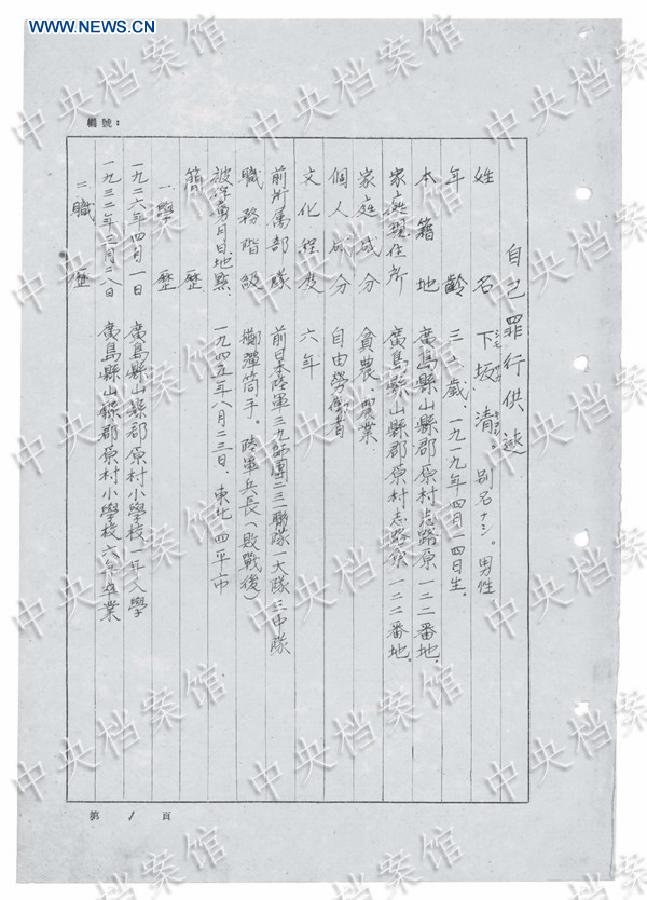 WWW.NEWS.CN
編號:
自己罪行供述
姓名 下坂清。別名ナシ。男性
年齡 三八歳、一九一九年四月一四日生。
本籍地 廣島縣山縣郡原村志路原一二二番地。
家庭現住所 廣島縣山縣郡原村志路原一二二番地。
家庭成分 貧農、農業
個人成分 自由勞働者
文化程度 六年
前所属部隊 前日本陸軍三九師團二三二聯隊一大隊三中隊
職務階級 擲彈筒手。陸軍兵長(敗戰後)
被俘年月日地點、 一九四五年八月二三日、東北四平市
簡歷
一、學歷
一九二六年四月一日 廣島縣山縣郡原村小學校一年入學
一九三二年三月二八日 廣島縣山縣郡原村小學校六年卒業
二、職歷
第 1 頁
中央档案馆